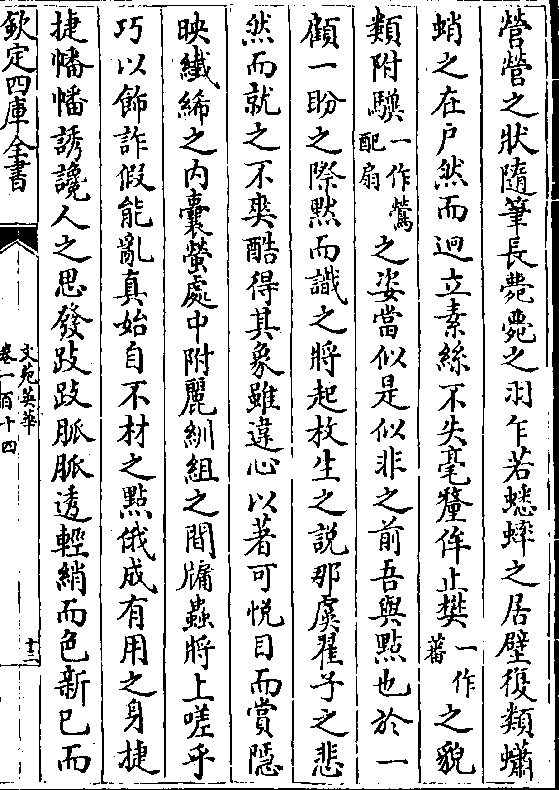 營營之狀隨筆長薨薨之羽乍若蟋蟀之居壁復類蠨
蛸之在戶然而迥立素絲不失毫釐侔止樊一作蕃之貌
類附驥一作鶯配扇之姿當似是似非之前吾與點也於一
顧一盼之際黙而識之將起放生之說那虞翟子之悲
然而就之不爽酷得其象雖違心以著可悅目而賞隠
映纎絺之内囊螢處中附麗紃組之間牖蟲將上嗟乎
巧以飾詐假能亂真始自不材之點俄成有用之身捷
捷幡幡誘讒人之思發跂跂脈脈透輕綃而色新已而
欽定四庫全書
文苑英華
卷一百十四
十二